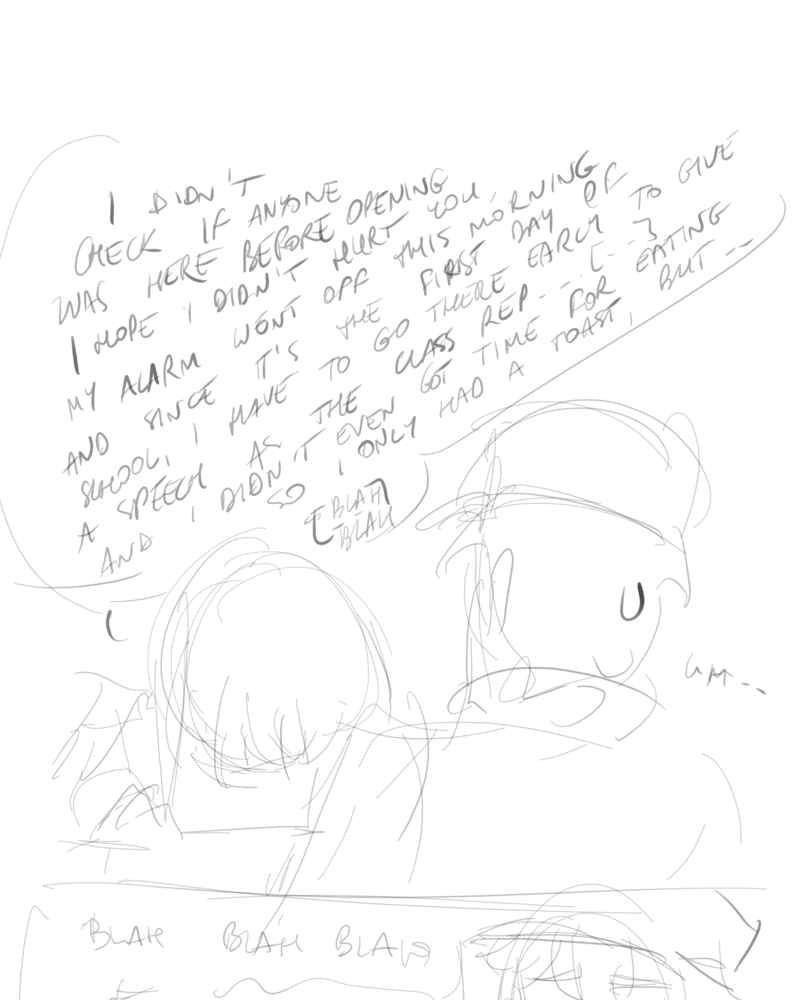 I DIDN'T
CHECK IF ANYONE
WAS HERE BEFORE OPENING
I HOPE I DIDN'T HURT YOU,
MY ALARM WENT OFF THIS MORNING
AND SINCE IT'S THE FIRST DAY OF
SCHOOL, I HAVE TO GO THERE EARLY TO GIVE
A SPEECH AS THE CLASS REP... [..]
AND I DIDN'T EVEN GOT TIME FOR EATING
SO I ONLY HAD A TOAST, BUT--
[BLAH
BLAH
BLAH BLAH BLAH